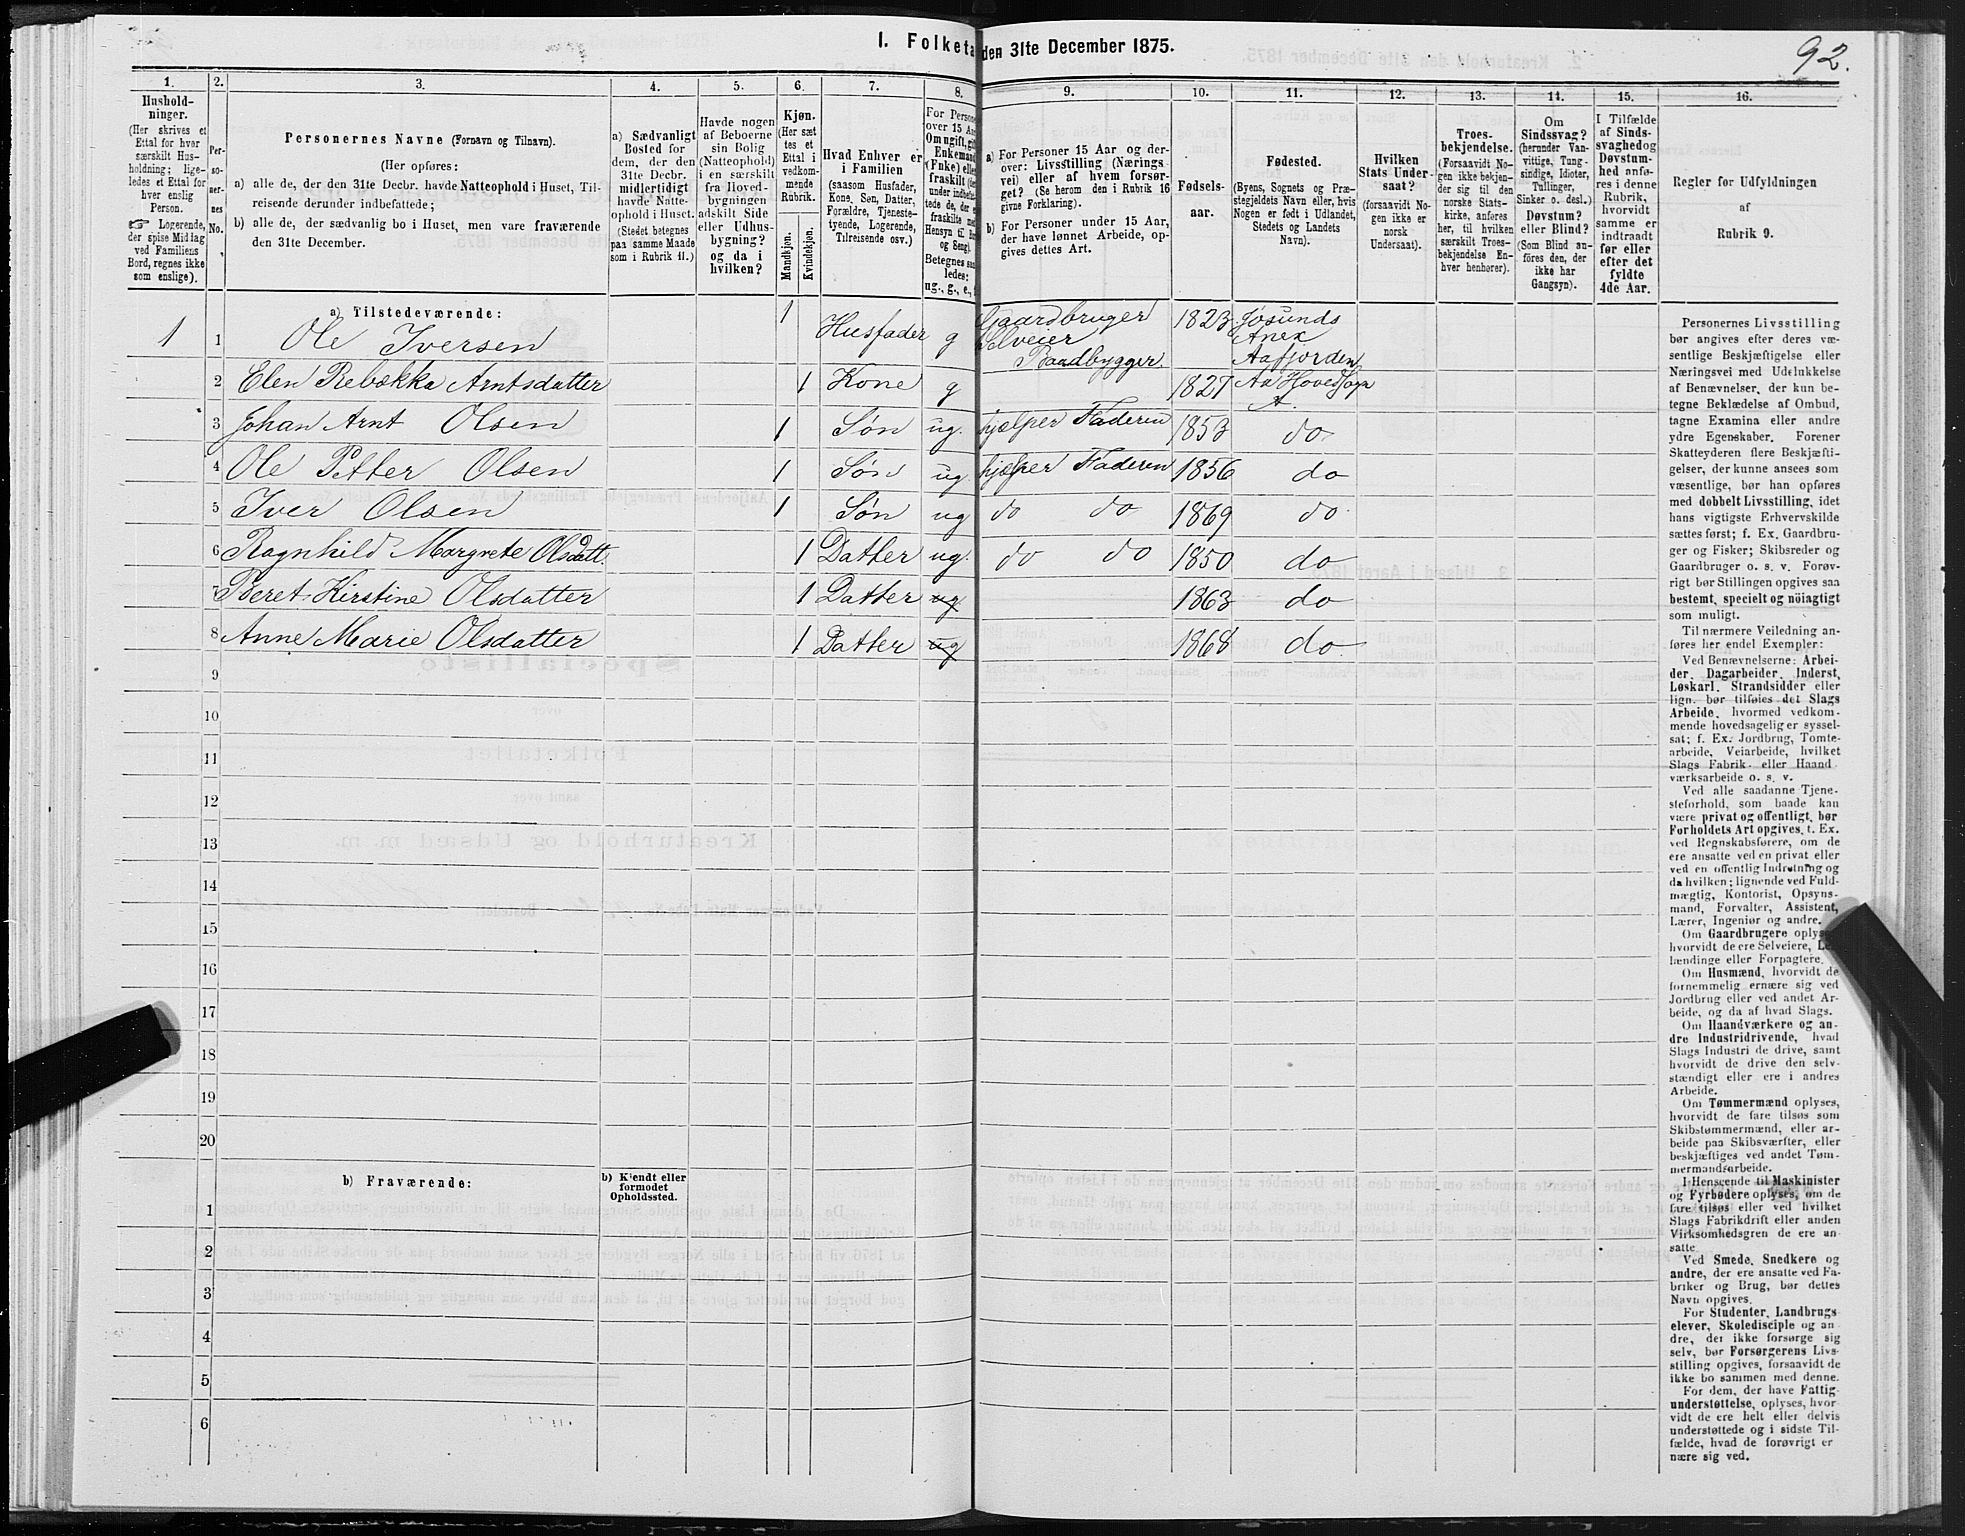 1. Folketa den 31te December 1875.
92.
1. 2. 3. 4. 5. 6. 7. 8. 9. 10. 11. 12. 13. 14. 15. 16.
Hushold-
ninger.
(Her skrives et
Ettal for hver
særskilt Hus-
holdning; lige-
ledes et Ettal for
hver enslig
Person.
☞ Logerende,
der spise Middag
ved Familiens
Bord, regnes ikke
som enslige).
Per-
so-
ner-
nes
No.
Personernes Navne (Fornavn og Tilnavn).
(Her opføres:
a) alle de, der den 31te Decbr. havde Natteophold i Huset, Til-
reisende derunder indbefattede;
b) alle de, der sædvanlig bo i Huset, men vare fraværende
den 31te December.
a) Sædvanligt
Bosted for
dem, der den
31te Decbr.
midlertidigt
havde Natte-
ophold i Huset.
(Stedet betegnes
paa samme Maade
som i Rubrik 11.)
Havde nogen
af Beboerne
sin Bolig
(Natteophold)
i en særskilt
fra Hoved-
bygningen
adskilt Side
eller Udhus-
bygning?
og da i
hvilken?
Kjøn.
(Her sæt
tes et
Ettal i
vedkom-
mende
Rubrik.
Mandkjøn.
Kvindekjøn.
Hvad Enhver er
i Familien
(saasom Husfader,
Kone, Søn, Datter,
Forældre, Tjeneste-
tyende, Logerende,
Tilreisende osv.)
For Persone
over 15 Aar
Om ugift, gift,
Enkemand
(Enke) eller
fraskilt
Betegnes saa
ledes:
ug., g., e.,
a) For Personer 15 Aar og der-
over: Livsstilling (Nærings
vei) eller af hvem forsør-
get? (Se herom den i Rubrik 16
givne Forklaring).
b) For Personer under 15 Aar,
der have lønnet Arbeide, op-
gives dettes Art.
Fødsels-
aar.
Fødested.
(Byens, Sognets og Præ-
stegjeldets Navn eller, hvis
Nogen er født i Udlandet,
Stedets og Landets
Navn).
Hvilken
Stats Under-
saat?
(forsaavidt No-
gen ikke er
norsk
Undersaat).
Troes-
bekjendelse.
(Forsaavidt No-
gen ikke bekjen-
der sig til den
norske Stats-
kirke, anføres
her, til hvilken
særskilt Troes-
bekjendelse En-
hver henhører).
Om
Sindssvag?
(herunder Van-
vittige, Tung-
sindige, Idioter,
Tullinger,
Sinker o. desl.)
Døvstum?
eller Blind?
(Som Blind an-
føres den, der
ikke har
Gangsyn).
I Tilfælde
af Sinds-
svaghed og
Døvstum-
hed anfø-
res i denne
Rubrik,
hvorvidt
samme er
indtraadt
før eller
efter det
fyldte
4de Aar.
Regler før Udfyldningen
af
Rubrik 9.
a) Tilstedeværende:
1 1 Ole Iversen 1 Husfader g Gaardbruger Selveier Baadbygger. 1823 Jøsunds Anex Aafjorden
2 Elen Rebekka Arntsdatter 1 Kone g 1827 Aa Hovedsogn A.
3 Johan Arnt Olsen 1 Søn ug. hjælper Faderen 1853 do
4 Ole Petter Olsen 1 Søn ug. hjælper Faderen 1856 do
5 Iver Olsen 1 Søn ug do do 1869 do
6 Ragnhild Margrete Olsdatt. 1 Datter ug. do do 1850 do
7 Beret Kirstine Olsdatter 1 Datter ug 1863 do
8 Anne Marie Olsdatter 1 Datter ug 1868 do
9
10
11
12
13
14
15
16
17
18
19
20
b) Fraværende:
b) Kjendt eller
formodet
Opholdssted.
1
2
3
4
5
6
Personernes Livsstilling
bør angives efter deres væ-
sentlige Beskjæftigelse eller
Næringsvei med Udelukkelse
af Benævnelser, der kun be-
tegne Beklædelse af Ombud,
tagne Examina eller andre
ydre Egenskaber. Forener
Skatteyderen flere Beskjæfti-
gelser, der kunne ansees som
væsentlige, bør han opføres
med dobbelt Livsstilling, idet
hans vigtigste Erhvervskilde
sættes først; f. Ex. Gaardbru-
ger og Fisker; Skibsreder og
Gaardbruger o. s. v. Forøv-
rigt bør Stillingen opgives saa
bestemt, specielt og nöiagtigt
som muligt.
Til nærmere Veiledning an-
føres her endel Exempler:
Ved Benævnelserne: Arbei-
der, Dagarbeider, Inderst,
Løskarl, Strandsidder eller
lign. bør tilføies det Slags
Arbeide, hvormed vedkom-
mende hovedsagelig er syssel-
sat; f. Ex. Jordbrug, Tomte-
arbeide, Veiarbeide, hvilket
Slags Fabrik- eller Haand
værksarbeide o. s. v.
Ved alle saadanne Tjene-
steforhold, som baade kan
være privat og offentligt, bør
Forholdets Art opgives, t. Ex.
ved Regnskabsførere, om de
ere ansatte ved en privat eller
ved en offentlig Indretning og
da hvilken; lignende ved Fuld-
mægtig, Kontorist, Opsyns-
mand, Forvalter, Assistent,
Lærer, Ingeniør og andre.
Om Gaardbrugere oplyse
hvorvidt de ere Selveiere, Le
lændinge eller Forpagtere.
Om Husmænd, hvorvidt de
fornemmelig ernære sig ved
Jordbrug eller ved andet Ar-
beide, og da af hvad Slags.
Om Haandværkere og an-
dre Industridrivende, hvad
Slags Industri de drive, samt
hvorvidt de drive den selv-
stændigt eller ere i andres
Arbeide.
Om Tømmermænd oplyses,
hvorvidt de fare tilsøs som
Skibstømmermænd, eller ar-
beide paa Skibsværfter, eller
beskjæftiges ved andet Tøm-
mermandsarbeide.
I Henseende til Maskinister
og Fyrbødere oplyses, om de
fare tilsøs eller ved hvilket
Slags Fabrikdrift eller anden
Virksomhedsgren de ere an-
satte.
Ved Smede, Snedkere og
andre, der ere ansatte ved Fa-
briker og Brug, bør dettes
Navn opgives.
For Studenter, Landbrugs
elever, Skoledisciple og an
dre, der ikke forsørge sig
selv, bør Forsørgerens Livs-
stilling opgives, forsaavidt de
ikke bo sammen med denne.
For dem, der have Fattig-
understøttelse, oplyses, hvor-
vidt de ere helt eller delvis
understøttede og i sidste Til-
fælde, hvad de forøvrigt er
nære sig ved.